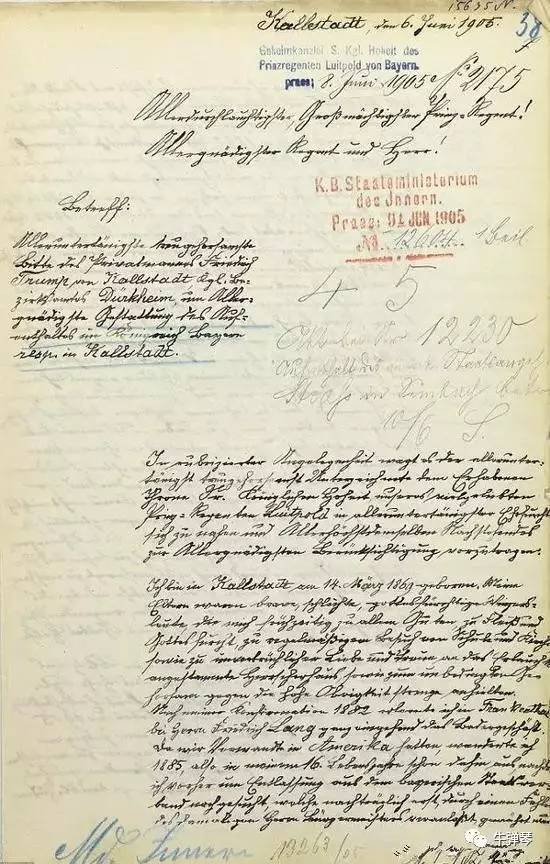 15635 N.
38
Kallstadt, den 6. Juni 1905.
Geheimkanzlei S. Kgl. Hoheit des
Prinzregenten Luitpold von Bayern.
praes: 8. Juni 1905 No 2175
Allerdurchlauchtigster, Großmächtigster Prinz-Regent!
Allergnädigster Regent und Herr!
K.B. Staatsministerium
des Innern.
Praes: JUN. 1905
No. 1 Beil
Betreff:
Alleruntertänigste treugehorsamste
Bitte des Privatmannes Friedrich
Trump von Kallstadt Kgl. Be-
zirksamts Dürkheim, um Aller-
gnädigste Gestattung des Auf-
enthaltes im Königreich Bayern
resp. in Kallstadt.
4 5
12230
10/6 S.
In rubrizierter Angelegenheit wagt es der allerunter-
tänigst treugehorsamst Unterzeichnete dem Erhabenen
Throne Sr. Königlichen Hoheit unseres vielgeliebten
Prinz-Regenten Luitpold in alleruntertänigster Ehrfurcht
sich zu nahen und Allerhöchstdemselben Nachstehendes
zur Allergnädigsten Berücksichtigung vorzutragen.
Ich bin in Kallstadt am 14. März 1869 geboren. Meine
Eltern waren brave, schlichte, gottesfürchtige Winzers-
leute, die mich frühzeitig zu allem Guten zu Fleiß und
Gottesfurcht, zu regelmäßigem Besuch von Schule und Kirche
sowie zu unverbrüchlicher Liebe und Treue an das Erlauchte
angestammte Herrscherhaus sowie zum unbedingten Ge-
horsam gegen die hohe Obrigkeit strenge anhielten.
Nach meiner Confirmation 1882 erlernte ich in Frankenthal
bei Herrn Friedrich Lang ganz eingehend das Badergeschäft.
Da wir Verwandte in Amerika hatten wanderte ich
1885, also in meinem 16. Lebensjahre schon dahin aus nachdem
ich vorher um Entlassung aus dem bayerischen Staatsver-
band nachgesucht, welche nachträglich erst durch einen
des damaligen Herrn Bürgermeisters veranlaßt,
Md. Innern
13263/05
牛弹琴